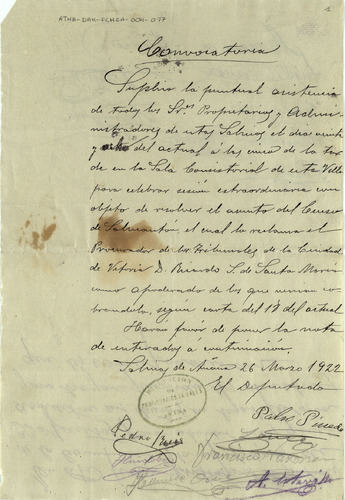 ATHA-DAH-FCMSA-004-077
1
Convocatoria
Suplico la puntual asistencia
de todos los Sres Propietarios y Admi-
nistradores de estas Salinas el dia veinte
y ocho del actual á las cinco de la tar
de en la Sala Consistorial de esta Villa
para celebrar sesión extraordinaria con
objeto de resolver el asunto del Censo
de Salmuera, el cual lo reclama el
Procurador de los Tribunales de la Ciudad
de Vitoria D. Ricardo S. de Santa María
como apoderado de los que venian co-
brandolo, según carta del 18 del actual
Haran favor de poner la nota
de enterados a continuación.
Salinas de Añana 26 Marzo 1922
El Diputado
Pablo Pinedo
Pedro Ruiz
Francisco